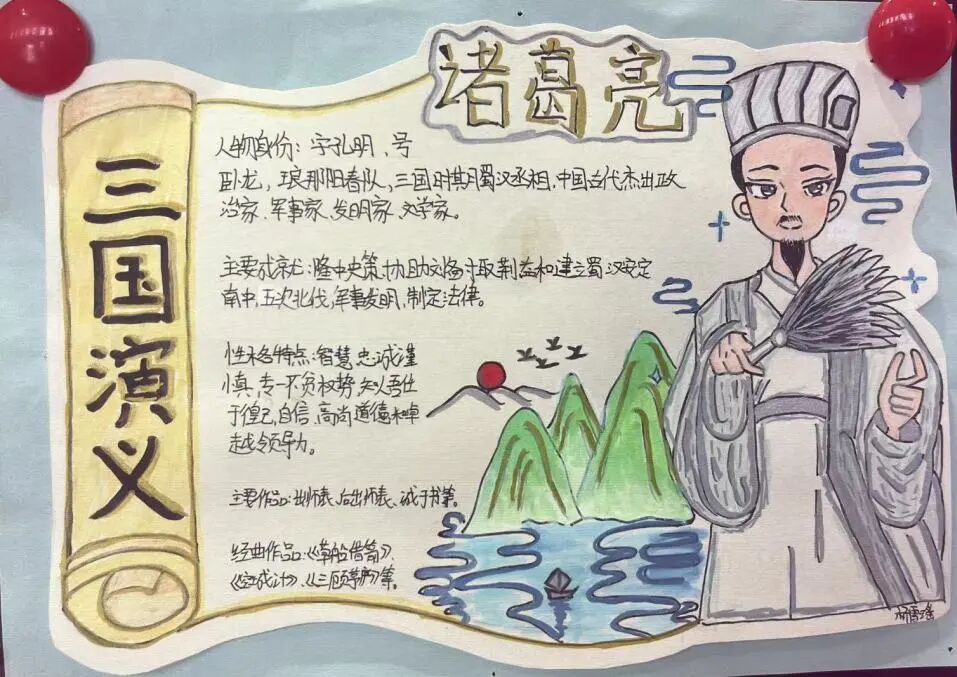 三国演义
诸葛亮
人物身份：字孔明、号
卧龙，琅那阳春队，三国时期蜀汉丞相，中国古代杰出政
治家、军事家、发明家、文学家。
主要成就：隆中央策，协助刘备取荆益和建立蜀汉安定
南中，五次北伐，军事发明，制定法律。
性格特点：智慧、忠诚谨
慎，专一不贪权势，
于 己，自信、高尚道德和卓
越领导力。
主要作品：出师表、后出师表、诫子书等。
经典作品：《草船借箭》、
《空城计》、《三顾茅庐》等。